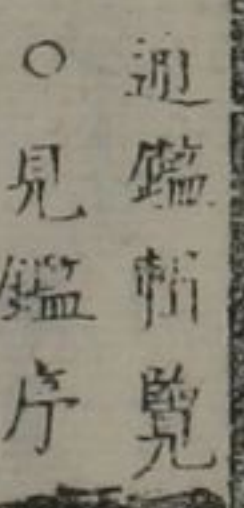 通鑑輯覽
○見鑑序